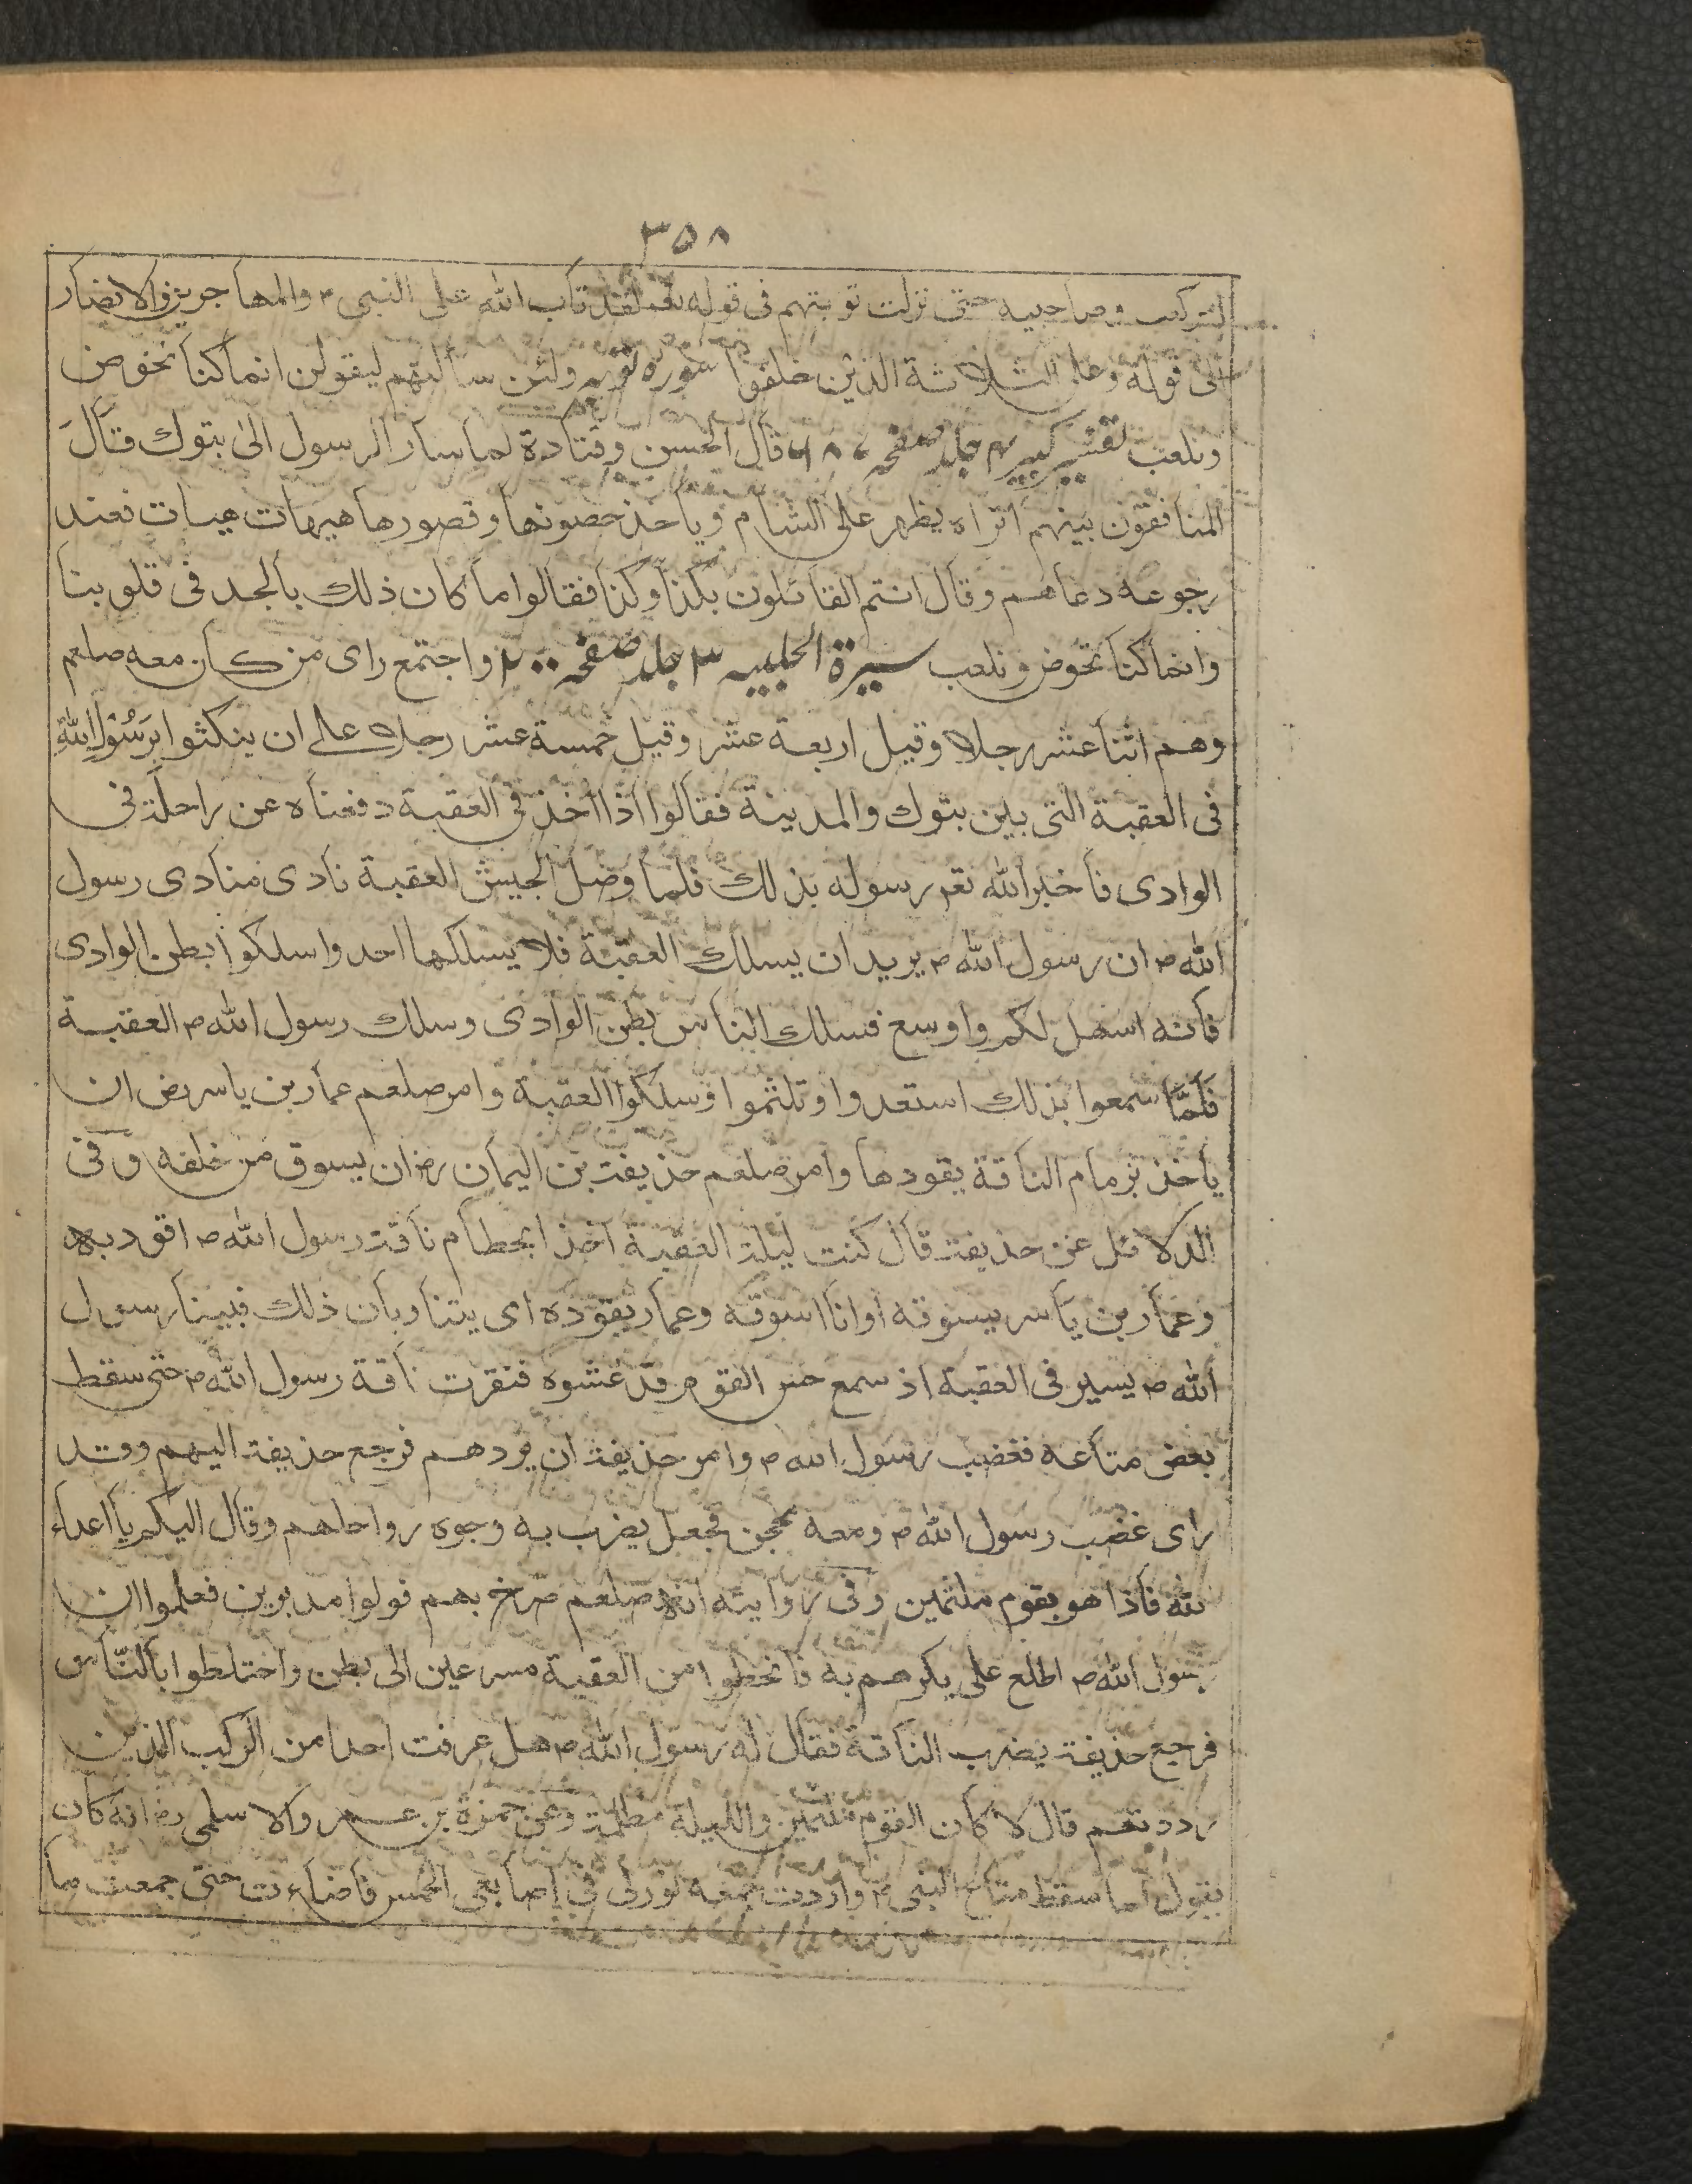 ٣٥٨
لتركب وصاحبيه حتى نزلت توبتهم فى قوله تعـ لقد تاب الله على النبى م والمهاجرين والانصار
الى قوله وعلى الثلاثة الذين خلفوا سوره توبه ولئن سألتهم ليقولن انما كنا نخوض
ونلعب تفسير كبير ٤ جلد صفحه ٦٨٧ قال الحسن وقتادة لما سار الرسول الى بتوك قال
المنافقون بينهم اتراه يظهر على الشام وياخذ حصونها وقصورها هيهات هيهات فعند
رجوعه دعاهم وقال انتم القائلون بكذا وكذا فقالوا ما كان ذلك بالجد فى قلوبنا
وانما كنا نخوض ونلعب سيرة الحلبيه ٣ جلد صفحه ٢٠٠ واجتمع راى من كان معه صلعم
وهم اثنا عشر رجلا وقيل اربعة عشر وقيل خمسة عشر رجلا على ان ينكثوا برَسُوْلِ اللهِ
فى العقبة التى بين بتوك والمدينة فقالوا اذا اخذ فى العقبة دفعناه عن راحلته فى
الوادى فاخبر الله تعـ رسوله بذلك فلما وصل الجيش العقبة نادى منادى رسول
الله ص ان رسول الله ص يريد ان يسلك العقبة فلا يسلكها احد واسلكوا بطن الوادى
فانه اسهل لكم واوسع فسلك الناس بطن الوادى وسلك رسول الله ص العقبة
فَلَمَّا سمعوا بذلك استعدوا وتلثموا وسلكوا العقبة وامر صلعم عمار بن ياسر رض ان
ياخذ بزمام الناقة يقودها وامر صلعم حذيفة بن اليمان رض ان يسوق من خلفه وفى
الدلائل عن حذيفة قال كنت ليلة العقبة اخذا بخطام ناقة رسول الله ص اقود به
وعمار بن ياسر يسوقه اوانا اسوقه وعمار يقوده اى يتناوبان ذلك فبينا رسول
الله ص يسير فى العقبة اذ سمع حس القوم قد غشوه فنفرت ناقة رسول الله ص حتى سقط
بعض متاعه فغضب رسول الله ص وامر حذيفة ان يردهم فرجع حذيفة اليهم وقد
راى غضب رسول الله ص ومعه محجن فجعل يضرب به وجوه رواحلهم وقال اليكم يا اعداء
لله فاذا هو بقوم ملثمين وفى رواية انه صلعم صرخ بهم فولوا مدبرين فعلموا ان
رسول الله ص اطلع على بكرهم به فانحطوا من العقبة مسرعين الى بطن واختلطوا بالنّاس
فرجع حذيفة يضرب الناقة فقال له رسول الله ص هل عرفت احدا من الركب الذين
رددتهم قال لا كان القوم ملثمين والليلة مظلمة وعن حمزة بن عمرو الاسلمى رض انه كان
يقول لما سقط متاع النبى م واردت جمعه نور لى فى اصابعى الخمس فاضاءت حتى جمعت ما